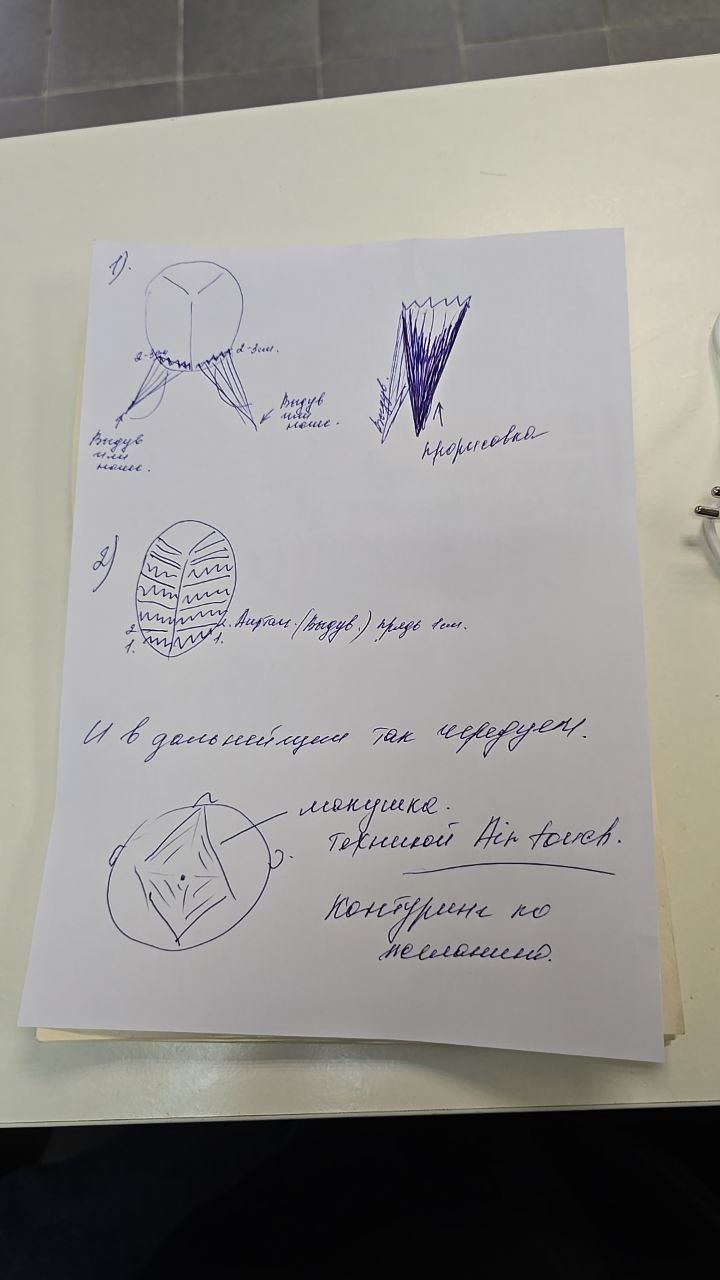 1).
2-3см
2-3см.
Выдув
или
начес.
Выдув
или
начес.
Выдув.
прорисовка
2)
2
1.
2. Аиртач. (Выдув.) прядь 1см.
1.
И в дальнейшем так чередуем.
макушка.
техникой Air touch.
Контуринг по
желанию.